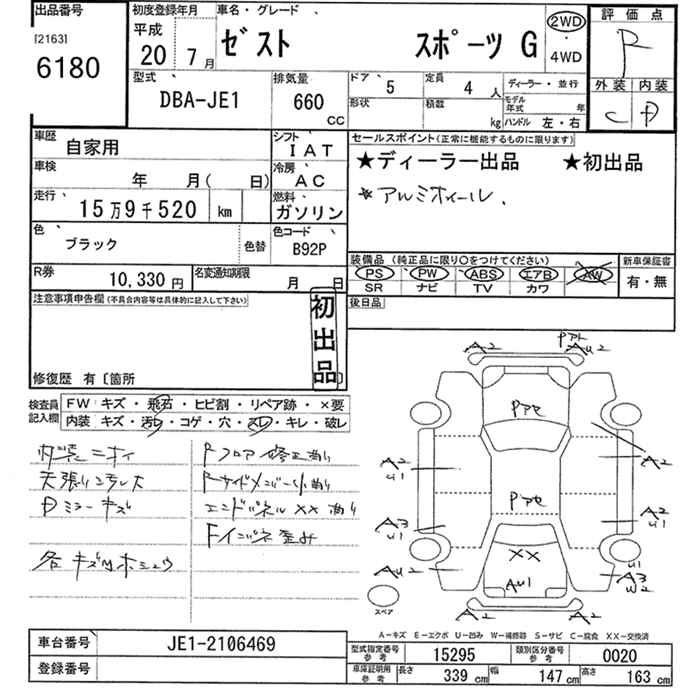 出品番号
[2163]
6180
初度登録年月
平成
20 7月
車名・グレード
ゼスト スポーツ G
2WD
・
4WD
評価点
R
外装 内装
C D
型式
DBA-JE1
排気量
660
CC
ドア 5
定員 4 人
形状
積載 kg
ディーラー・並行
モデル年式 年
ハンドル 左・右
車歴 自家用
シフト IAT
車検 年 月( 日)
冷房 AC
走行 15万9千520 km
燃料 ガソリン
色 ブラック 色替
色コード B92P
R券 10,330円
名変通知期限 月 日
セールスポイント(正常に機能するものに限ります)
★ディーラー出品 ★初出品
*アルミホイール、
装備品(純正品に限り○をつけてください)
PS PW ABS エアB AW
SR ナビ TV カワ
新車保証書
有・無
後日品
注意事項申告欄(不具合内容等は具体的に記入して下さい)
初出品
修復歴 有〔箇所 〕
検査員記入欄
FW キズ・飛石・ヒビ割・リペア跡・×要
内装 キズ・汚レ・コゲ・穴・スレ・キレ・破レ
内装ニオイ
天張りヨゴレ大
Dミラーキズ
各キズ凹ホシュウ
Rフロア修正あり
Rサイドメンバー小あり
エンドパネル××あり
Fインパネ歪み
A2
AU2
Pアセ
A2
U1
A2
Pアセ
A2
U1
A3
U1
××
AU2
AU1
U1
A3
W2
A2
A2
スペア
A-キズ E-エクボ U-凹み W-補修跡 S-サビ C-腐食 XX-交換済
車台番号 JE1-2106469
登録番号
型式指定番号 参考 15295
類別区分番号 参考 0020
車庫証明用 参考 長さ 339 cm 幅 147 cm 高さ 163 cm